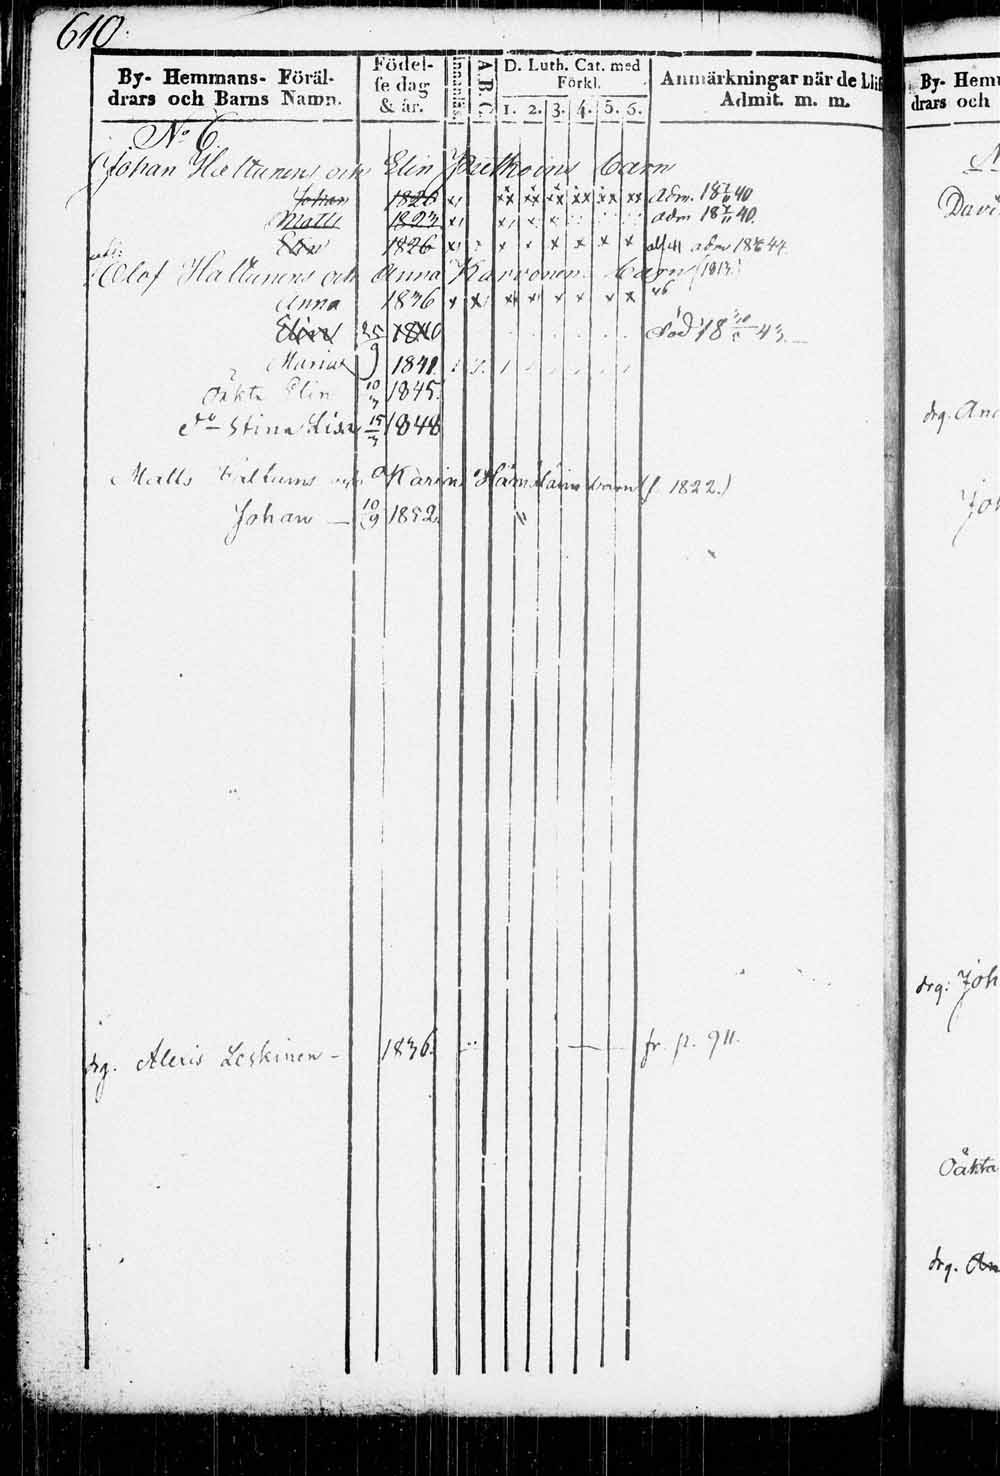 610.
By- Hemmans- Föräl-
drars och Barns Namn.
Födel-
se dag
& år.
Innanläs.
A. B. C.
D. Luth. Cat. med
Förkl.
1. 2. 3. 4. 5. 6.
Anmärkningar när de
Admit. m. m.
No 6.
Johan Hattunens och Elin barn
Johan 1820 adm. 18 40
Matts 1823 adm 18 40.
Elin 1826 adm 18 44
Olof Hattunens och Anna Karvonens barn (1813.)
Anna 1836
Elin 25/9 1840 död 18 43.
Maria 1841.
Oäkta Elin 10/3 1845.
do Stina Lisa 15/3 1848
Matts och Karin barn (f. 1822.)
Johan — 10/9 1852.
drg. Alexis Leskinen — 1836. fr. p. 911.
By- Hem
drars och
Davi
drg. An
Joh
drg. Joh
Oäkta
drg. An